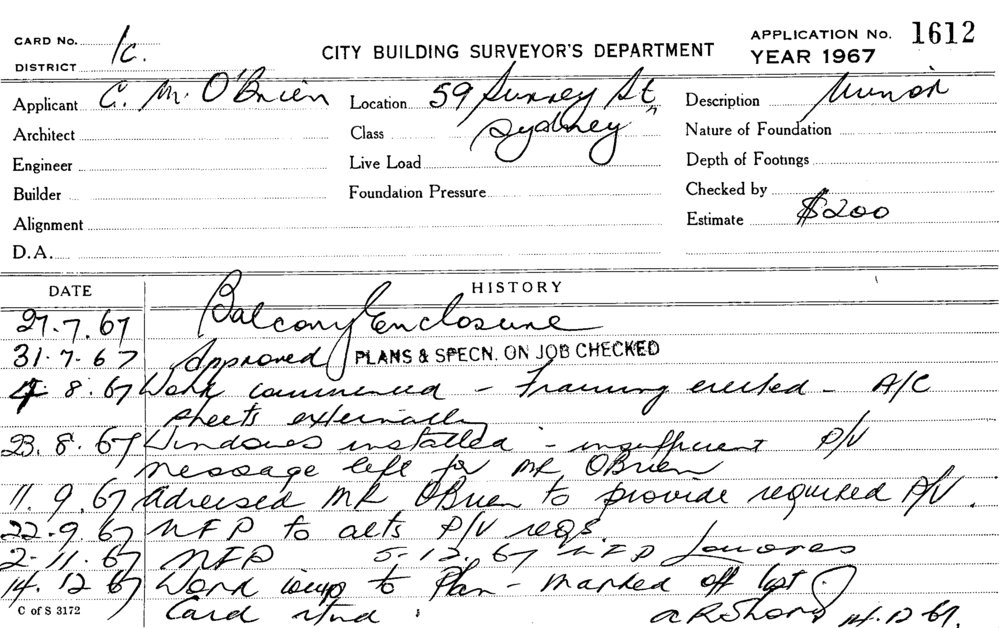 CARD No. 1c.
DISTRICT
CITY BUILDING SURVEYOR'S DEPARTMENT
APPLICATION No. 1612
YEAR 1967
Applicant C. M. O'Brien Location 59 Surrey St, Description Minor
Architect Class Sydney Nature of Foundation
Engineer Live Load Depth of Footings
Builder Foundation Pressure Checked by
Alignment Estimate $200
D.A.
DATE HISTORY
27.7.67 Balcony Enclosure
31.7.67 Approved PLANS & SPECN. ON JOB CHECKED
4.8.67 Work commenced - Framing erected - A/C
sheets externally
23.8.67 Windows installed - insufficient P/V
message left for MR OBrien
11.9.67 Advised MR OBrien to provide required P/V.
22.9.67 NFP to alts P/V reqs.
2.11.67 NFP 5.12.67 NFP Louvres
14.12.67 Work comp to Plan - marked off list
Card rtnd 14.12.67.
C of S 3172